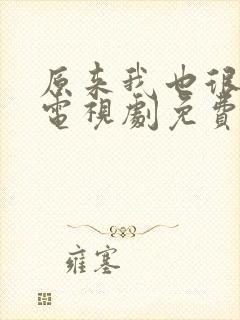 原来我也很
電視劇免費
雍塞